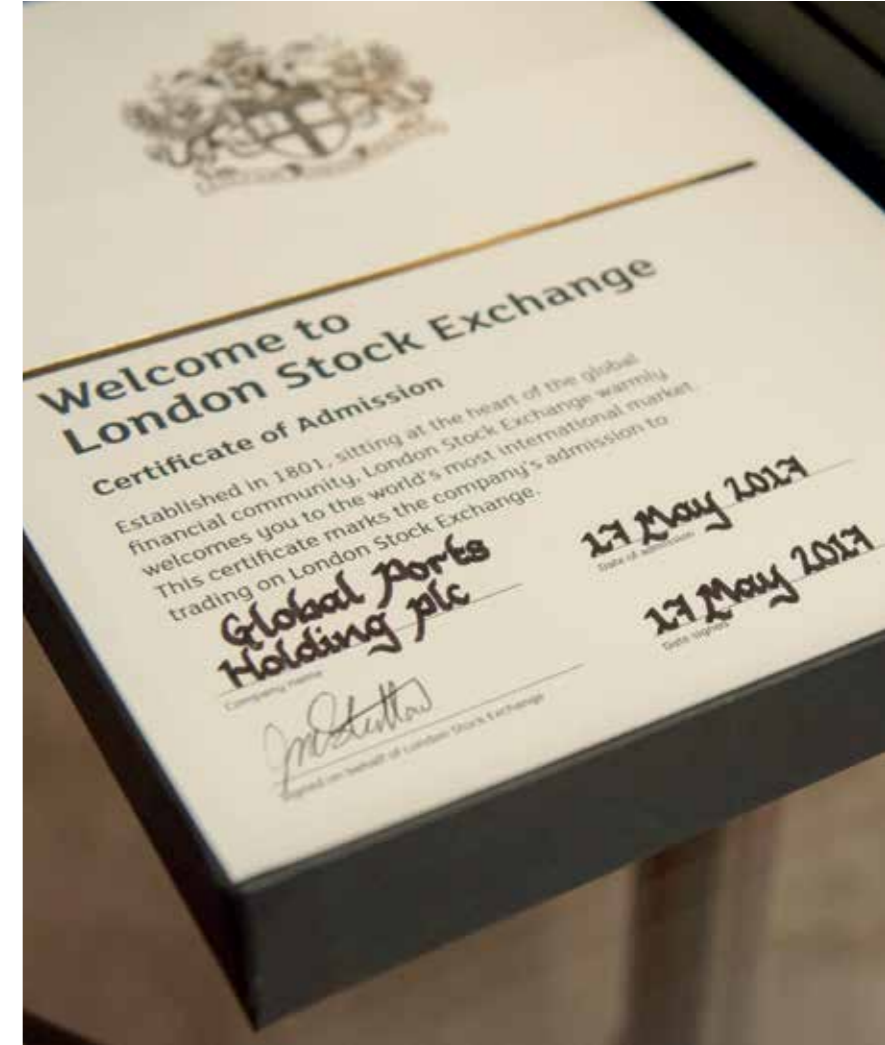 Welcome to
London Stock Exchange
Certificate of Admission
Established in 1801, sitting at the heart of the global
financial community, London Stock Exchange warmly
welcomes you to the world's most international market.
This certificate marks the company's admission to
trading on London Stock Exchange.
Global Ports
Holding plc
Company name
17 May 2017
Date of admission
17 May 2017
Date signed
Signed on behalf of London Stock Exchange